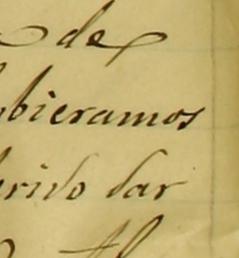 de
bieramos
rido dar